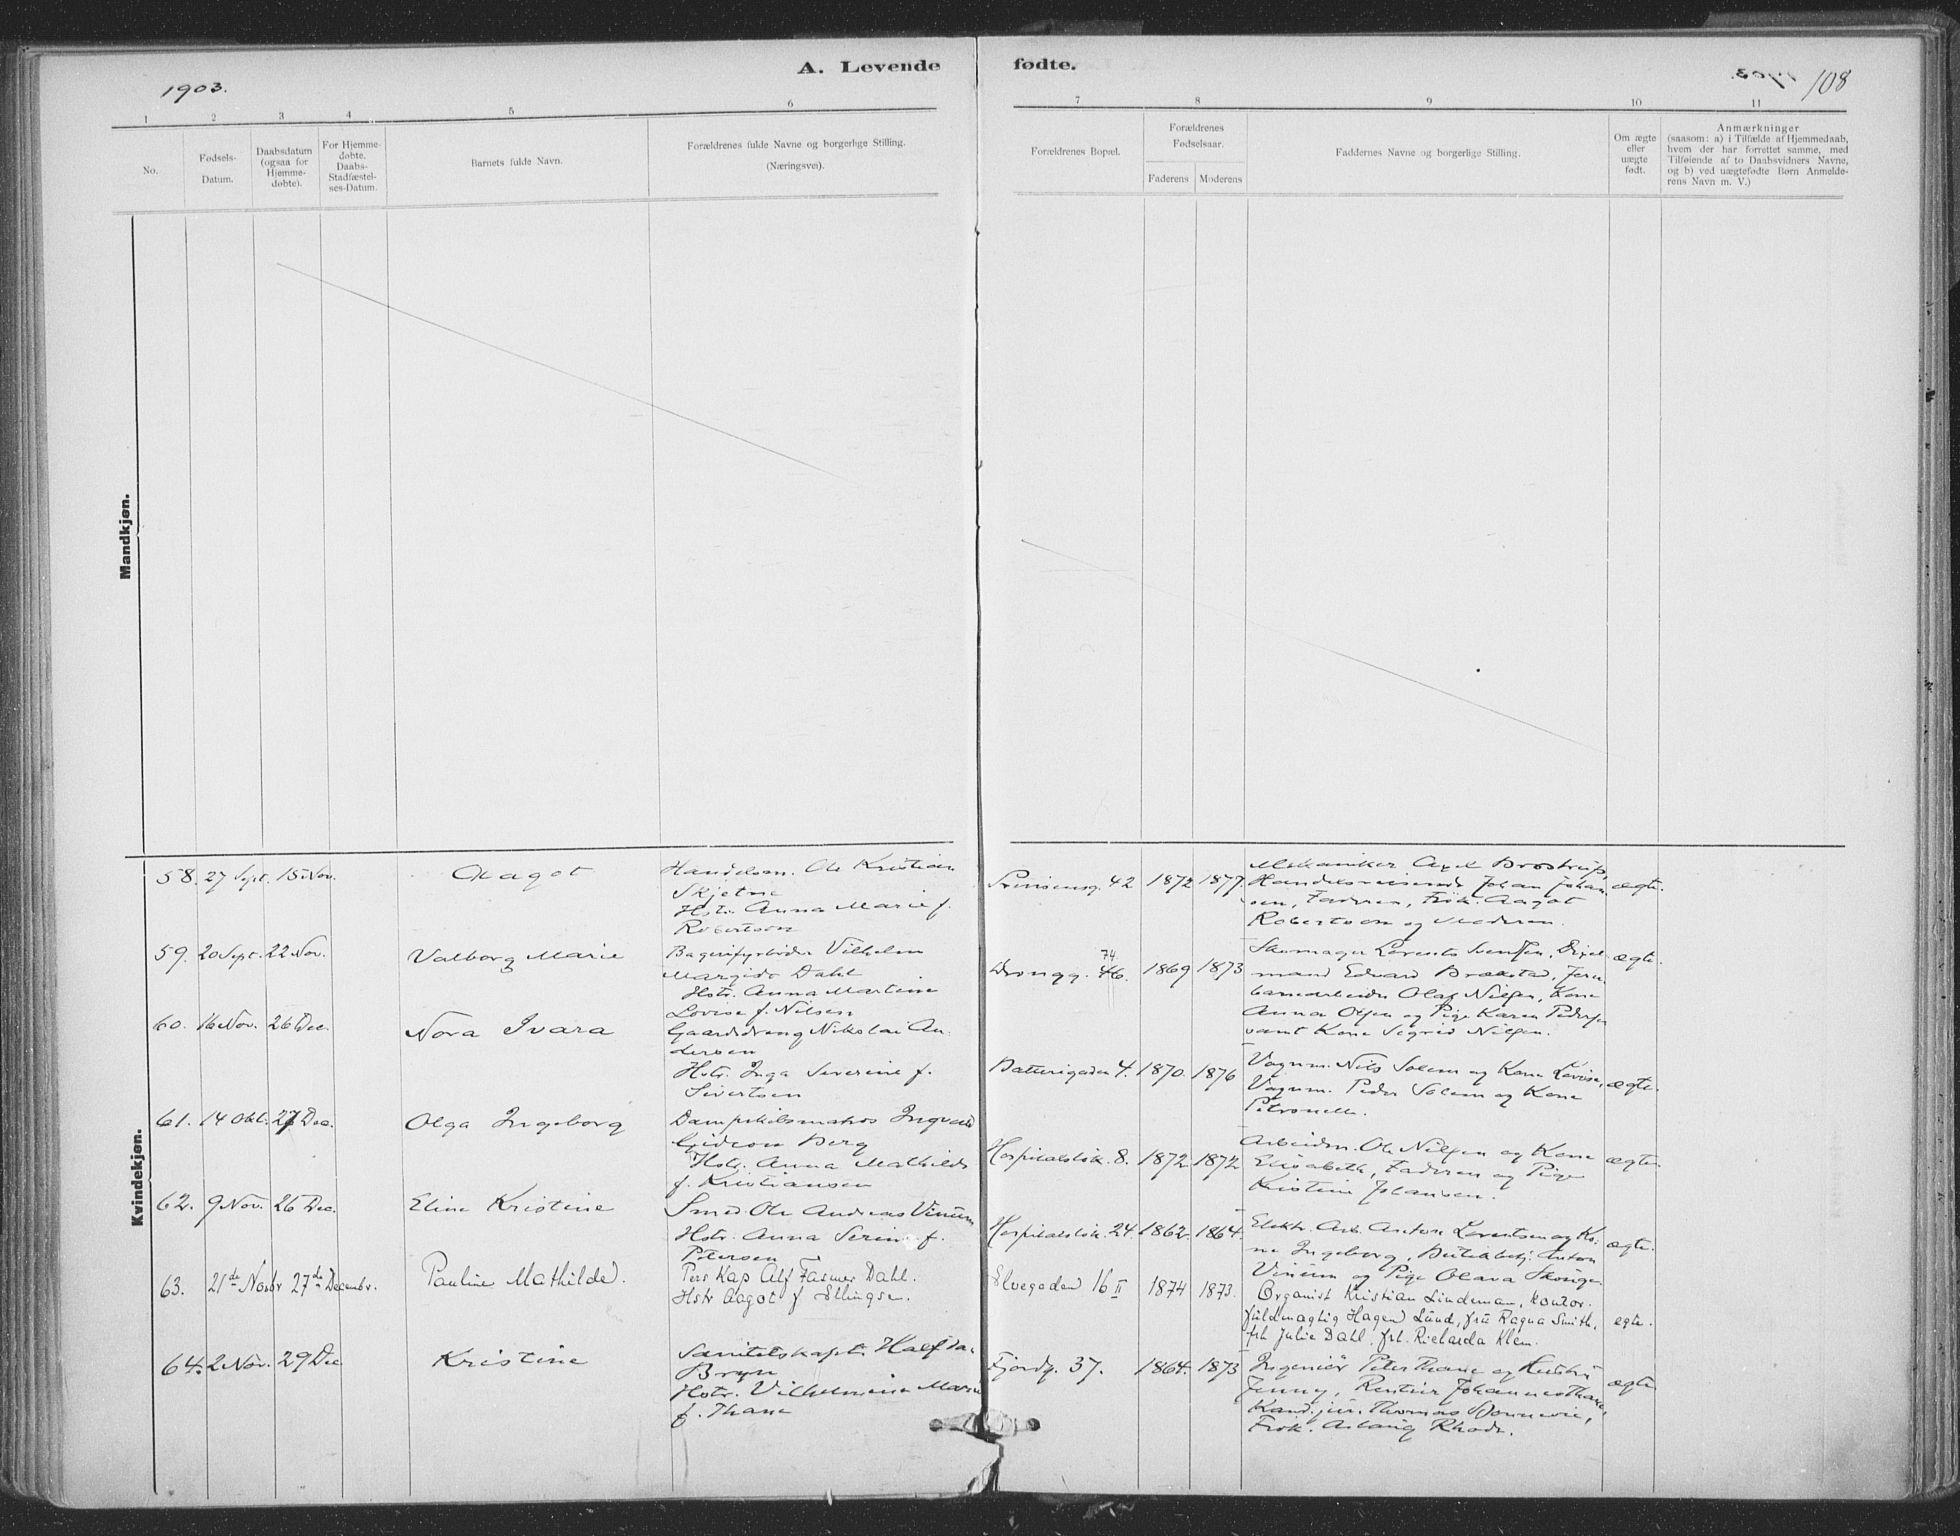 1903.
A. Levende
fødte.
108
1 2 3 4 5 6
7 8 9 10 11
No.
Fødsels-
Datum.
Daabsdatum
(ogsaa for
Hjemme-
døbte).
For Hjemme-
døbte.
Daabs-
Stadfæstel-
ses-Datum.
Barnets fulde Navn.
Forældrenes fulde Navne og borgerlige Stilling.
(Næringsvei).
Forældrenes Bopæl.
Forældrenes
Fødselsaar.
Faderens
Moderens
Faddernes Navne og borgerlige Stilling.
Om ægte
eller
uægte
født.
Anmærkninger
(saasom: a) i Tilfælde af Hjemmedaab,
hvem der har forrettet samme, med
Tilføiende af to Daabsvidners Navne,
og b) ved uægtefødte Børn Anmelde-
rens Navn m. V.)
Mandkjøn.
Kvindekjøn.
58. 27 Sept. 15 Nov. Aagot
Handelsm. Ole Kristian
Skjetne
Hstr. Anna Marie f.
Robertson
Prinsensg. 42 1872 1877.
Mekaniker Axel Brostrup,
Handelsreisende Johan Johan-
sen, Faderen, Frøk. Aagot
Robertson og Moderen.
ægte.
59. 20 Sept. 22 Nov. Valborg Marie
Bagerifyrbøder Vilhelm
Margido Dahl
Hstr. Anna Martine
Lovise f. Nilsen
Dronngg. 74 46. 1869 1873
Skomager Lorents Svendsen, Dixel-
mand Edvard Brækstad, Jern-
banearbeider Olaf Nilsen, Kone
Anna Olsen og Pige Karen Pedersen
samt Kone Sigrid Nilsen.
ægte.
60. 16 Nov. 26 Dec. Nora Ivara
Gaardsdreng Nikolai An-
dersen
Hstr. Inga Severine f.
Sivertsen
Batterigaden 4. 1870. 1876
Vognm. Nils Solem og Kone Lovise,
Vognm. Peder Solem og Kone
Petronelle.
ægte.
61. 14 Okt. 27 Dec. Olga Ingeborg
Dampskibsmatros Ingvald
Gideon Berg
Hstr. Anna Mathilde
f. Kristiansen
Hospitalsløk. 8. 1872. 1872
Arbeidsm. Ole Nilsen og Kone
Elisabeth, Faderen og Pige
Kristine Johansen.
ægte.
62. 9 Nov. 26 Dec. Eline Kristine
Smed Ole Andreas Vinum
Hstr. Anna Serine f.
Petersen
Hospitalsløk. 24. 1862. 1864.
Elektr. Arb. Anton Lorentsen og Ko-
ne Ingeborg, Butikbetj. Anton
Vinum og Pige Olava
ægte.
63. 21de Novbr 27de Decembr. Pauline Mathilde.
Pers Kap Alf Fasmer Dahl.
Hstr Aagot f Ellingse.
Elvegaden 16 II 1874 1873.
Organist Kristian Lindeman, Kontor-
fuldmægtig Hagen Lund, fru Ragna Smith,
frk Julie Dahl, frk. Richarda Klem.
egte.
64. 2 Nov. 29 Dec Kristine
Sanitetskapt. Halfda-
Bryn
Hstr. Vilhelmine Marie
f. Thane
Fjordg. 37. 1864. 1873
Ingeniør Peter Thane og Hustru
Jenny, Rentier Johannes Thane,
Kand. jur. Thomas Bonnevie,
Frøk. Aslaug Rhode.
ægte